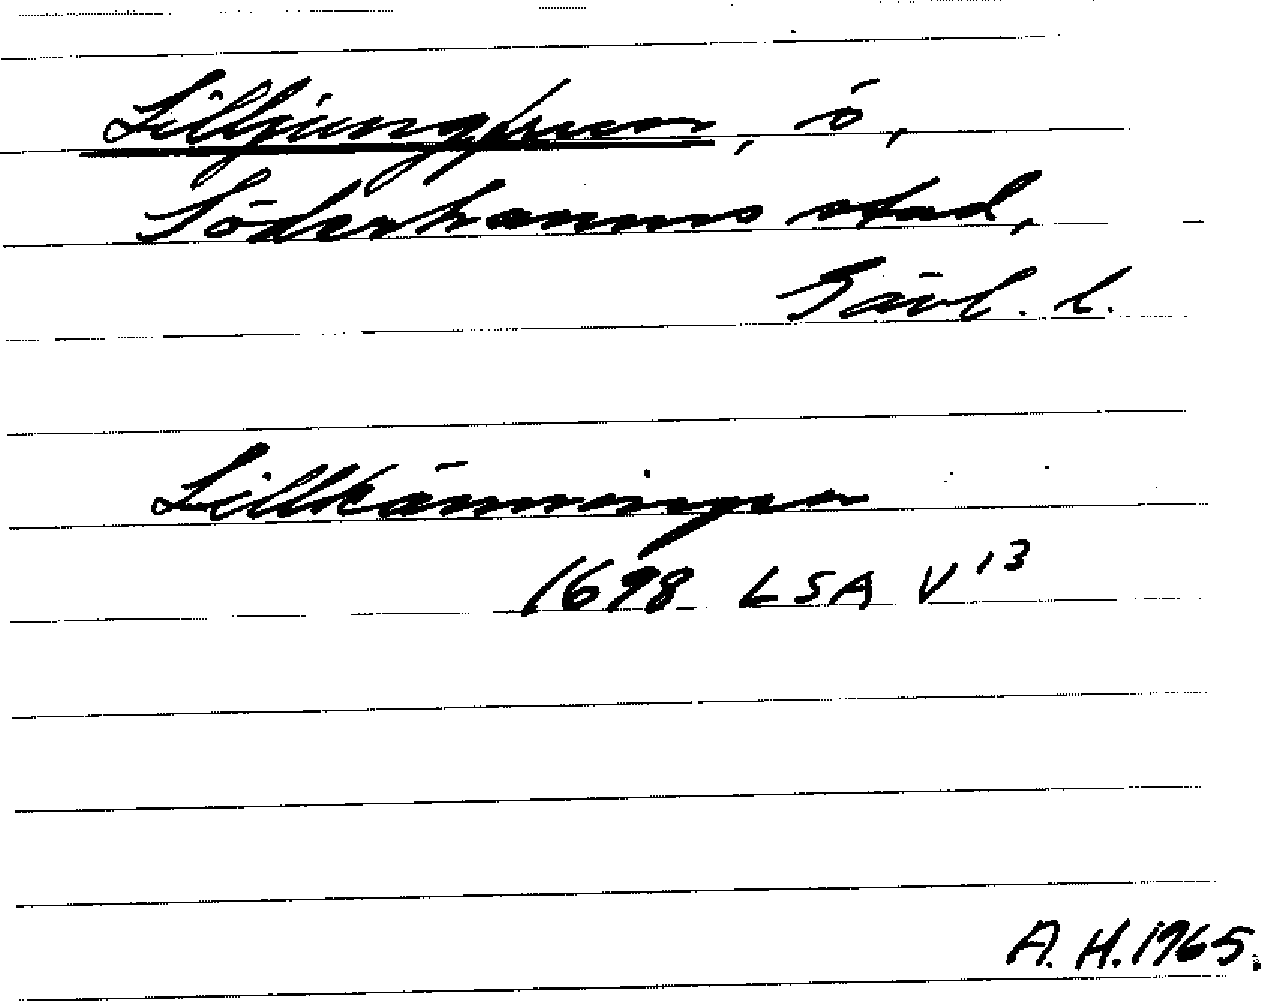 Lilljungfrun, ö,
Söderhamns stad,
Gävl. l.
Lillkänningen
1698 LSA V 13
A. H. 1965.